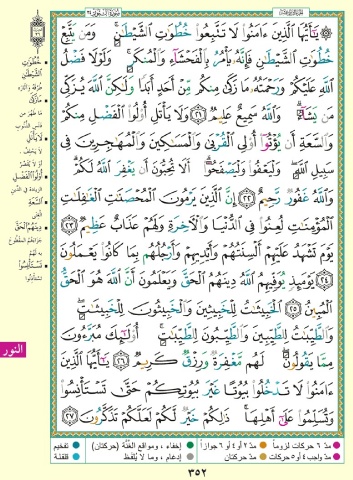 سورة النور ٢٤
يَٰٓأَيُّهَا ٱلَّذِينَ ءَامَنُوا۟ لَا تَتَّبِعُوا۟ خُطُوَٰتِ ٱلشَّيْطَٰنِ ۚ وَمَن يَتَّبِعْ
خُطُوَٰتِ ٱلشَّيْطَٰنِ فَإِنَّهُۥ يَأْمُرُ بِٱلْفَحْشَآءِ وَٱلْمُنكَرِ ۚ وَلَوْلَا فَضْلُ
ٱللَّهِ عَلَيْكُمْ وَرَحْمَتُهُۥ مَا زَكَىٰ مِنكُم مِّنْ أَحَدٍ أَبَدًا وَلَٰكِنَّ ٱللَّهَ يُزَكِّى
مَن يَشَآءُ ۗ وَٱللَّهُ سَمِيعٌ عَلِيمٌ ٢١ وَلَا يَأْتَلِ أُو۟لُوا۟ ٱلْفَضْلِ مِنكُمْ
وَٱلسَّعَةِ أَن يُؤْتُوٓا۟ أُو۟لِى ٱلْقُرْبَىٰ وَٱلْمَسَٰكِينَ وَٱلْمُهَٰجِرِينَ فِى
سَبِيلِ ٱللَّهِ ۖ وَلْيَعْفُوا۟ وَلْيَصْفَحُوٓا۟ ۗ أَلَا تُحِبُّونَ أَن يَغْفِرَ ٱللَّهُ لَكُمْ ۗ
وَٱللَّهُ غَفُورٌ رَّحِيمٌ ٢٢ إِنَّ ٱلَّذِينَ يَرْمُونَ ٱلْمُحْصَنَٰتِ ٱلْغَٰفِلَٰتِ
ٱلْمُؤْمِنَٰتِ لُعِنُوا۟ فِى ٱلدُّنْيَا وَٱلْءَاخِرَةِ وَلَهُمْ عَذَابٌ عَظِيمٌ ٢٣
يَوْمَ تَشْهَدُ عَلَيْهِمْ أَلْسِنَتُهُمْ وَأَيْدِيهِمْ وَأَرْجُلُهُم بِمَا كَانُوا۟ يَعْمَلُونَ
٢٤ يَوْمَئِذٍ يُوَفِّيهِمُ ٱللَّهُ دِينَهُمُ ٱلْحَقَّ وَيَعْلَمُونَ أَنَّ ٱللَّهَ هُوَ ٱلْحَقُّ
ٱلْمُبِينُ ٢٥ ٱلْخَبِيثَٰتُ لِلْخَبِيثِينَ وَٱلْخَبِيثُونَ لِلْخَبِيثَٰتِ ۖ
وَٱلطَّيِّبَٰتُ لِلطَّيِّبِينَ وَٱلطَّيِّبُونَ لِلطَّيِّبَٰتِ ۚ أُو۟لَٰٓئِكَ مُبَرَّءُونَ
مِمَّا يَقُولُونَ ۖ لَهُم مَّغْفِرَةٌ وَرِزْقٌ كَرِيمٌ ٢٦ يَٰٓأَيُّهَا ٱلَّذِينَ
ءَامَنُوا۟ لَا تَدْخُلُوا۟ بُيُوتًا غَيْرَ بُيُوتِكُمْ حَتَّىٰ تَسْتَأْنِسُوا۟
وَتُسَلِّمُوا۟ عَلَىٰٓ أَهْلِهَا ۚ ذَٰلِكُمْ خَيْرٌ لَّكُمْ لَعَلَّكُمْ تَذَكَّرُونَ ٢٧
خُطُوَاتِ
الشَّيْطَانِ
مَا زَكَى
لَا يَأْتَلِ
لا يَحْلِف
أُولُوا الْفَضْلِ
السَّعَةِ
الغنى
دِينَهُمُ الْحَقَّ
تَسْتَأْنِسُوا
تستأذنوا
النور
مدّ ٦ حركات لزوماً
مدّ ٢ أو ٤ أو ٦ جوازاً
إخفاء، ومواقع الغُنَّة (حركتان)
تفخيم
مدّ واجب ٤ أو ٥ حركات
مدّ حركتان
إدغام، وما لا يُلفَظ
قلقلة
٣٥٢